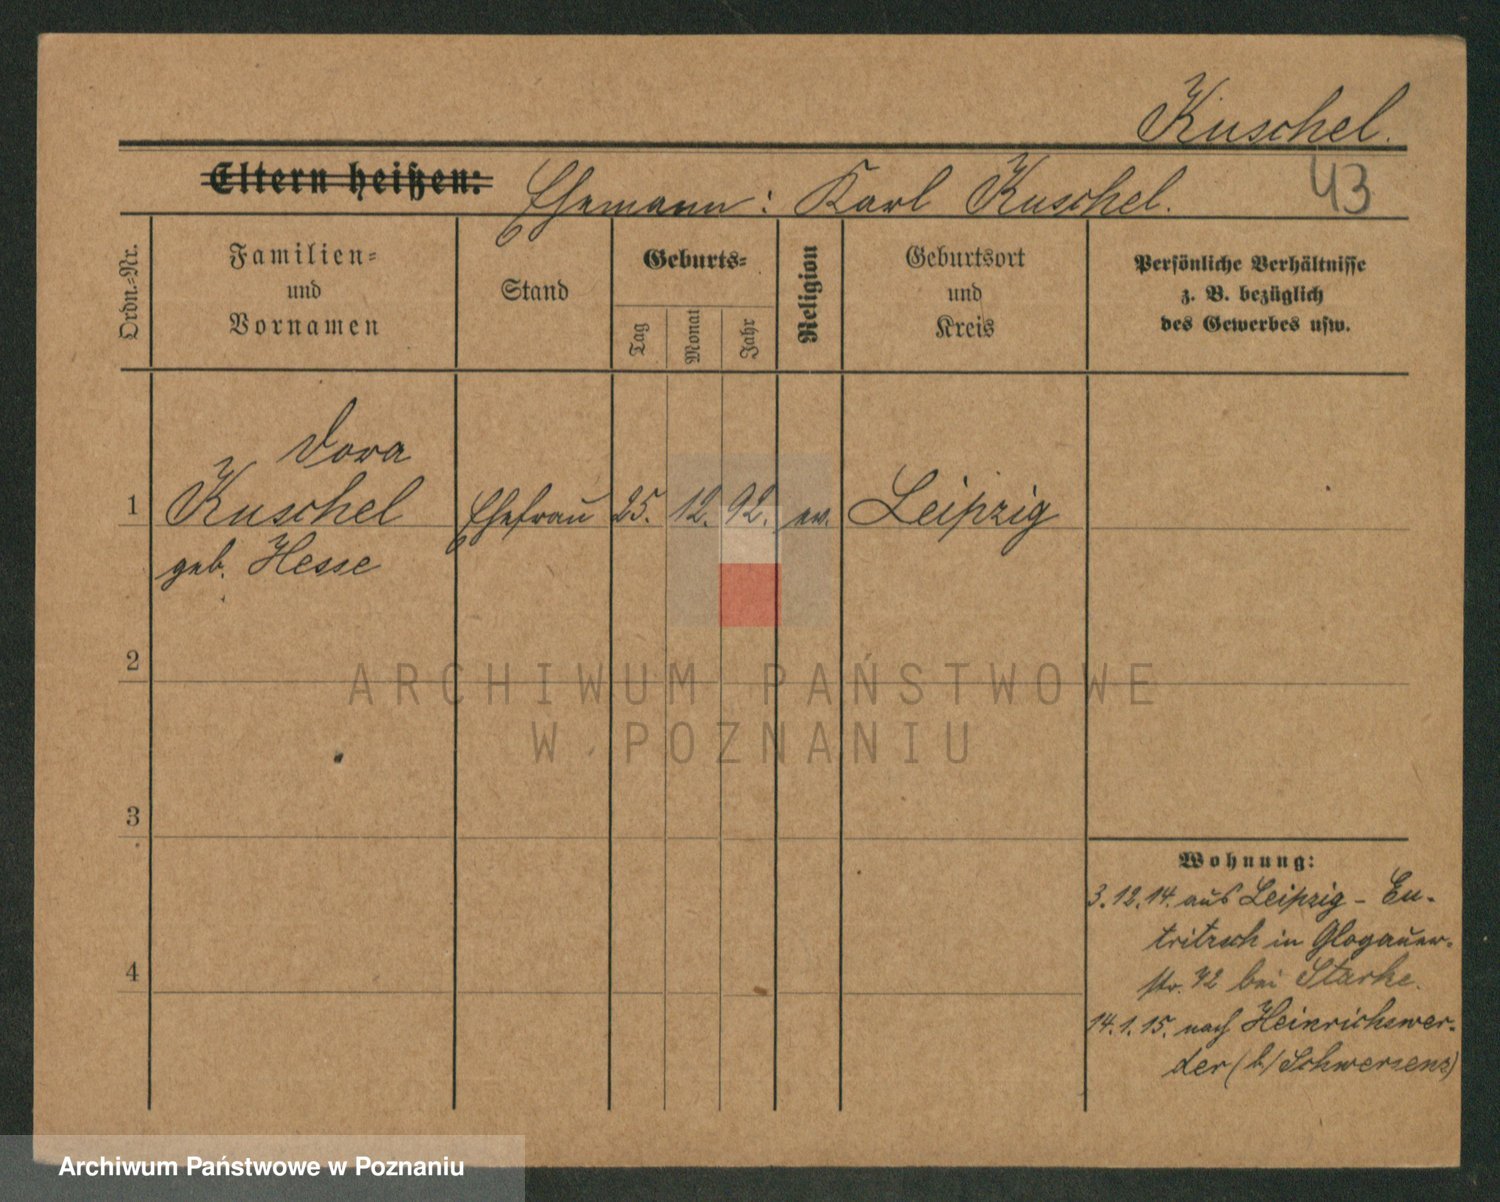 Kuschel.
Eltern heißen: Ehemann: Karl Kuschel. 43
Ordn.-Nr.
Familien-
und
Vornamen
Stand
Geburts-
Tag
Monat
Jahr
Religion
Geburtsort
und
Kreis
Persönliche Verhältnisse
z. B. bezüglich
des Gewerbes usw.
Dora
1 Kuschel Ehefrau 25. 12. 92. ev. Leipzig
geb. Hesse
2
ARCHIWUM PAŃSTWOWE
W POZNANIU
3
4
Wohnung:
3.12.14. aus Leipzig - Eu-
tritzsch in Glogauer-
str. 42 bei Starke.
14.1.15. nach Heinrichswer-
der (b/Schwersenz)
Archiwum Państwowe w Poznaniu